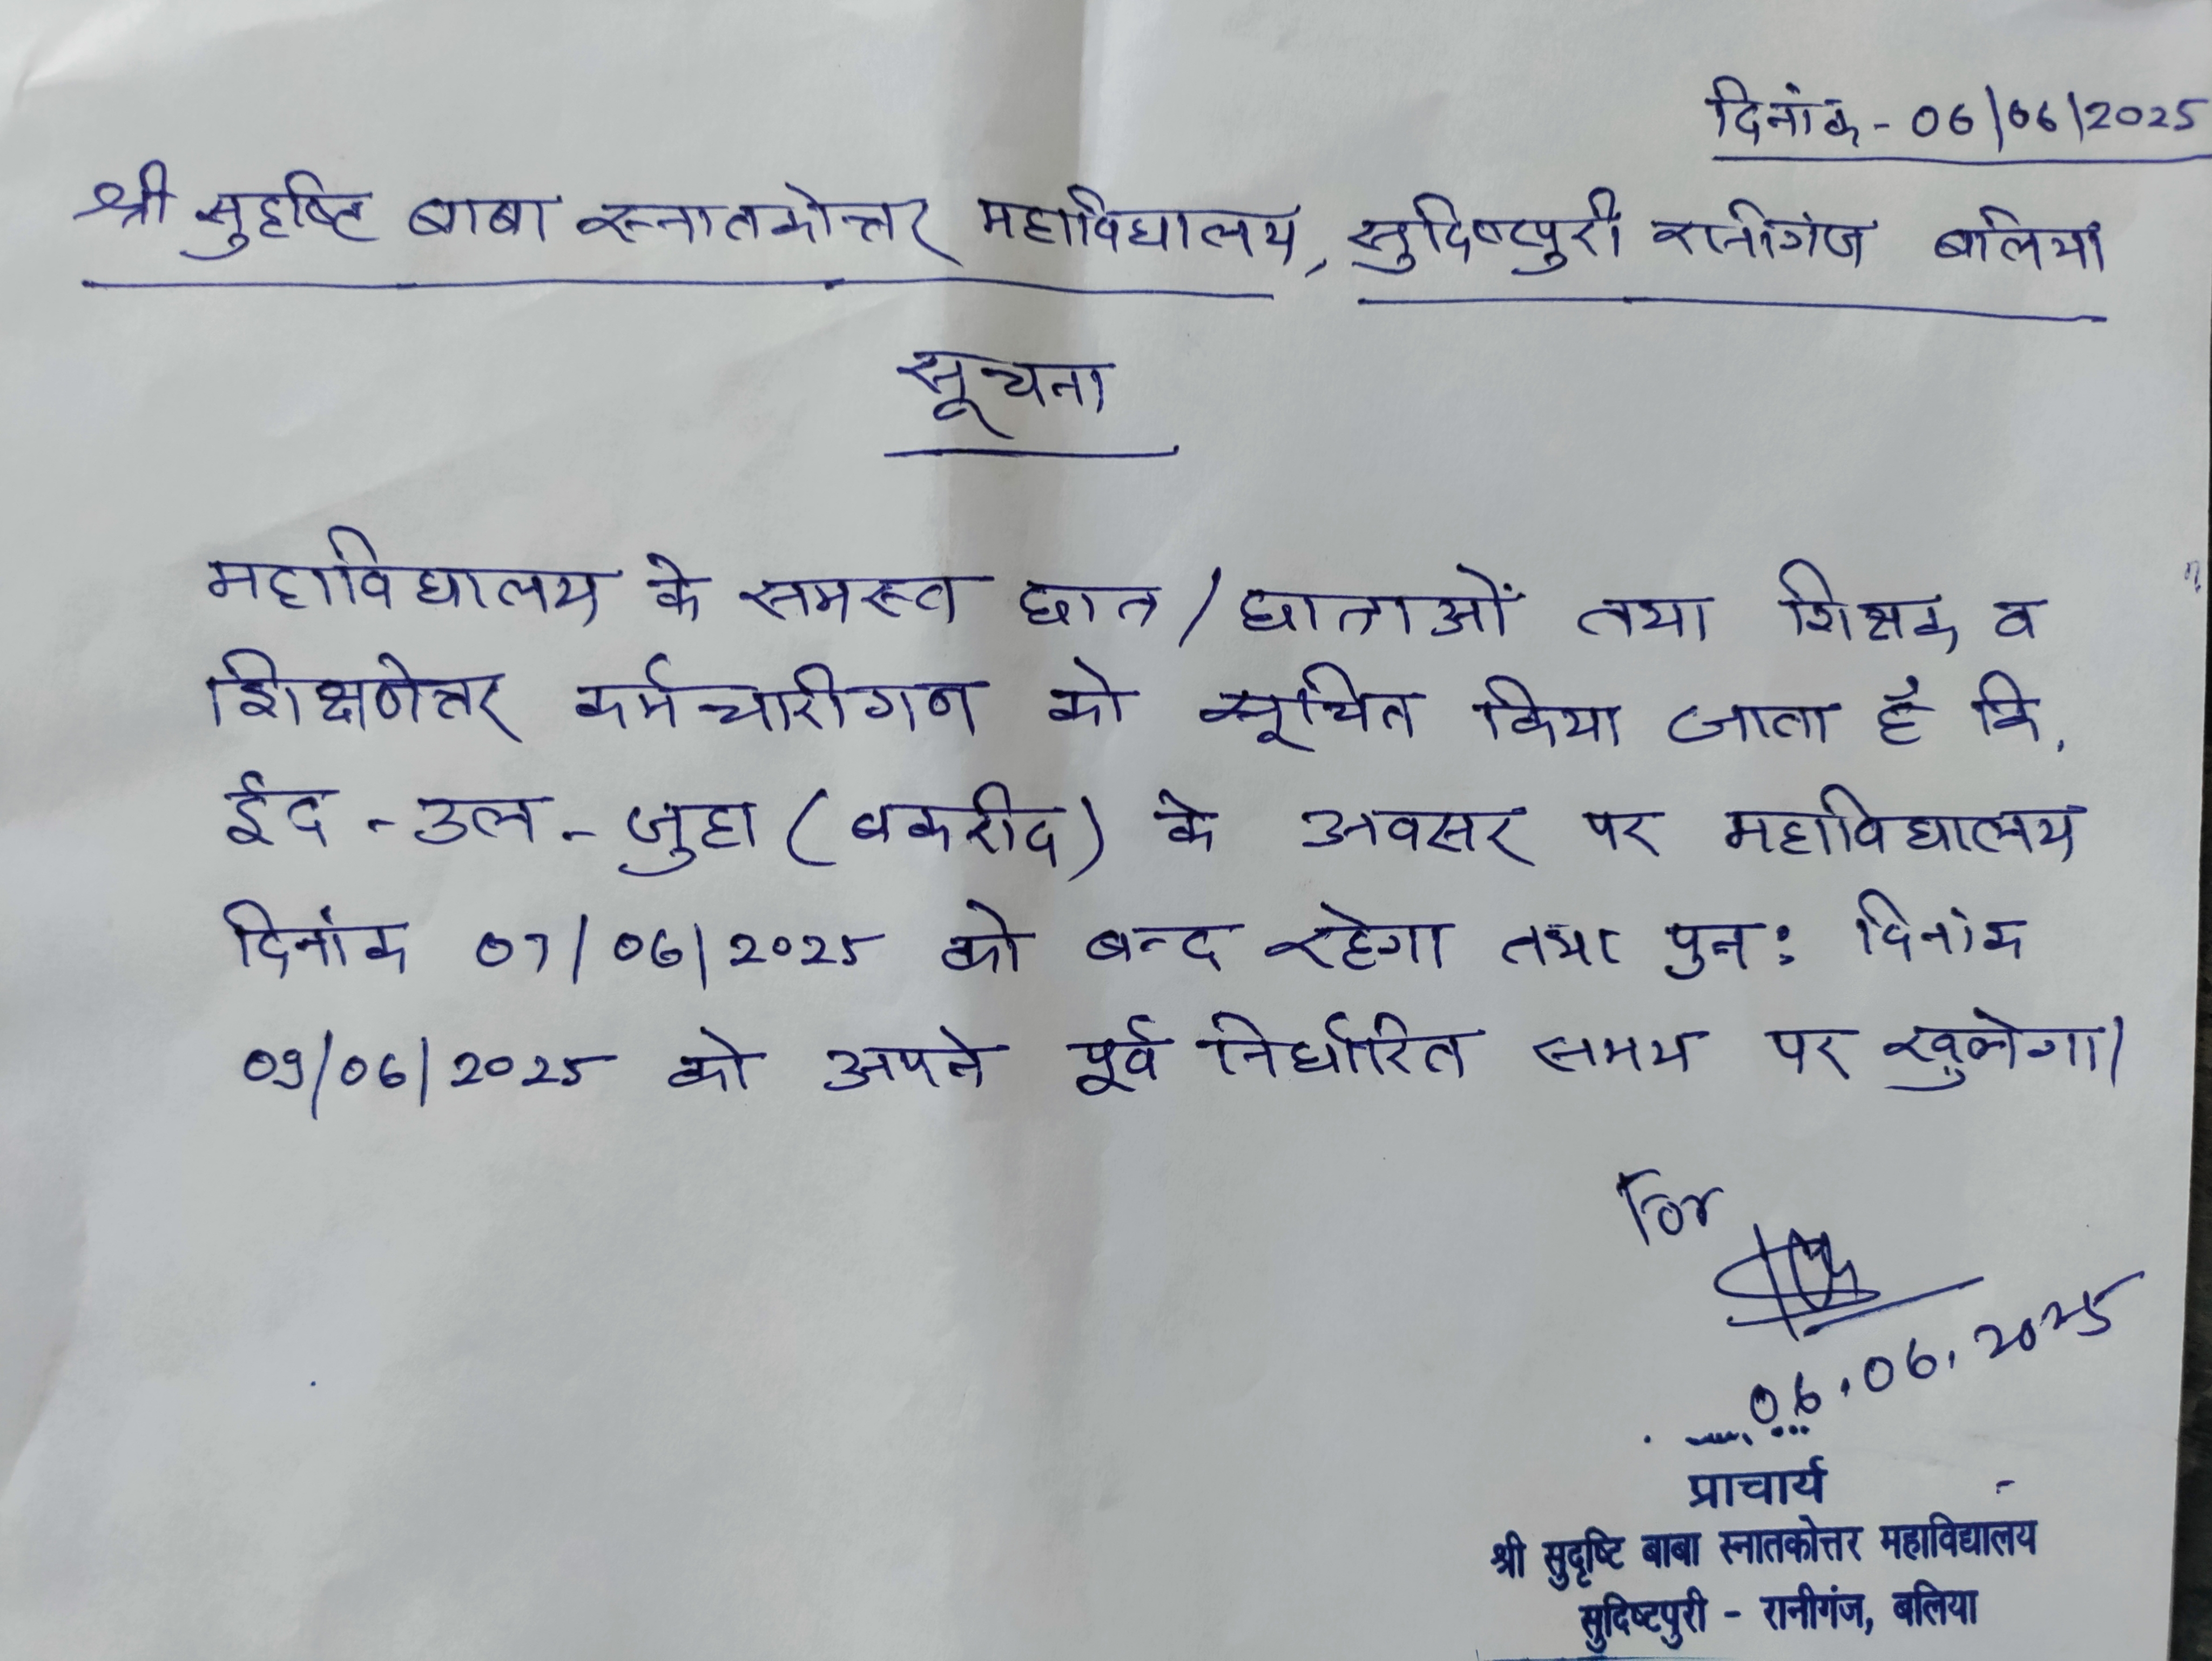 दिनांक - 06/06/2025
श्री सुदृष्टि बाबा स्नातकोत्तर महाविद्यालय, सुदिष्टपुरी रानीगंज बलिया
सूचना
महाविद्यालय के समस्त छात्र/छात्राओं तथा शिक्षक व
शिक्षणेत्तर कर्मचारीगन को सूचित किया जाता है कि,
ईद - उल - जुहा (बकरीद) के अवसर पर महाविद्यालय
दिनांक 07/06/2025 को बन्द रहेगा तथा पुनः दिनांक
09/06/2025 को अपने पूर्व निर्धारित समय पर खुलेगा।
For
06.06.2025
प्राचार्य
श्री सुदृष्टि बाबा स्नातकोत्तर महाविद्यालय
सुदिष्टपुरी - रानीगंज, बलिया